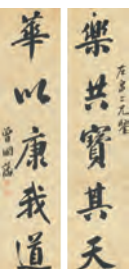 樂共寶其天
華以康我道
曾國藩